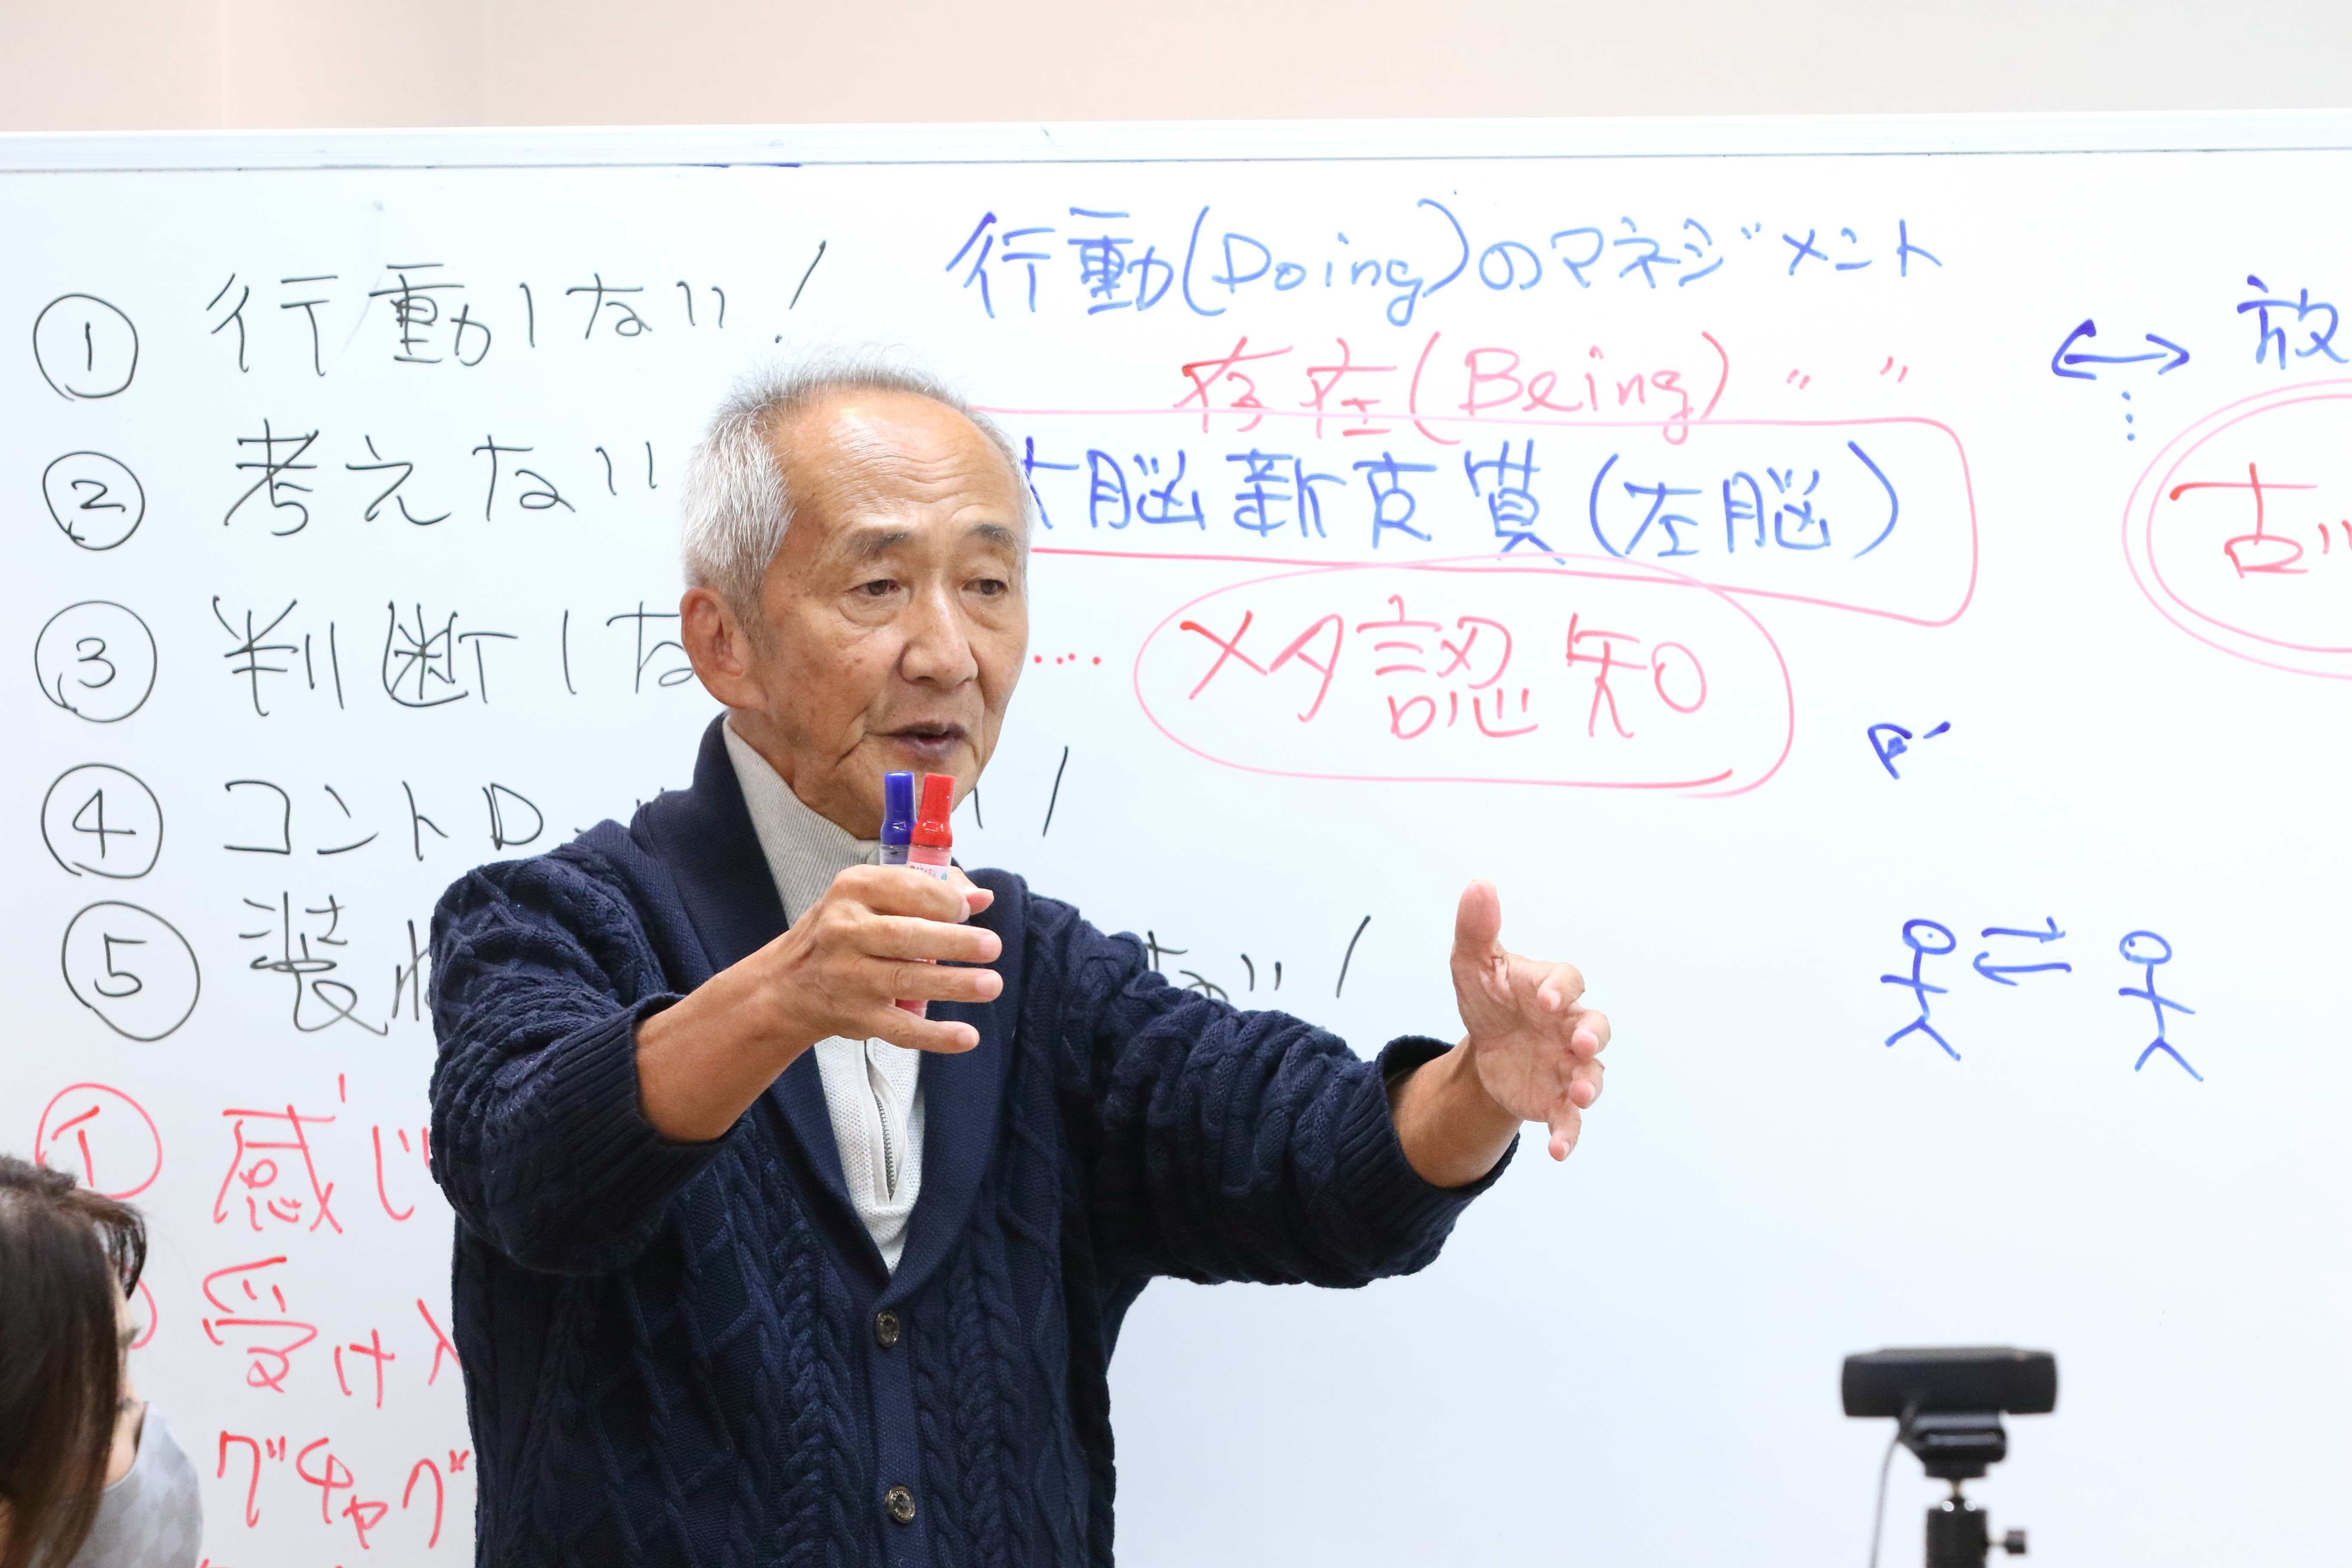 ① 行動しない!
行動(Doing)のマネジメント
存在(Being) 〃 〃
↔ 放
② 考えない
大脳新皮質(左脳)
古い
③ 判断しな
‥‥ メタ認知
④ コントロー
⑤ 装わ ない!
① 感じ
受け入
グチャグ